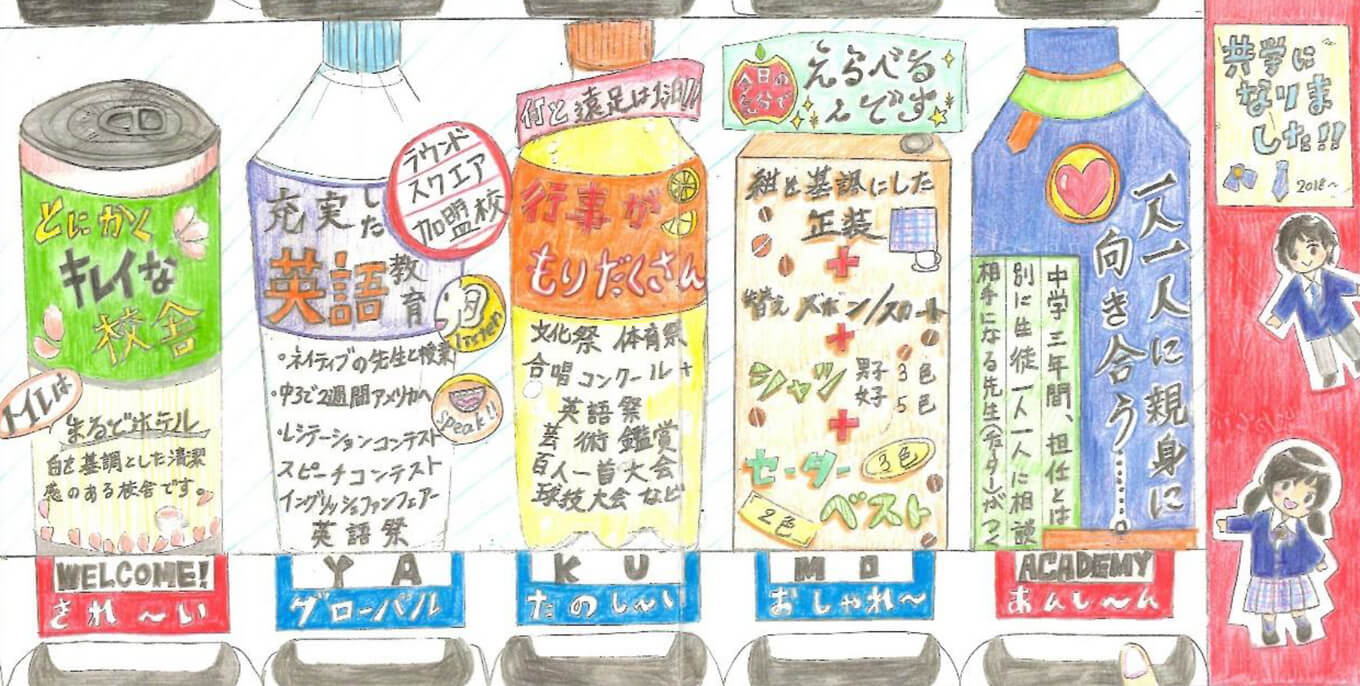 とにかく
キレイな
校舎
トイレは
まるでホテル
白を基調とした清潔
感のある校舎です。
ラウンド
スクエア
加盟校
充実した
英語教育
Listen
・ネイティブの先生と授業
・中3で2週間アメリカへ
Speak!!
・レシテーションコンテスト
スピーチコンテスト
イングリッシュファンフェアー
英語祭
何と遠足は
行事が
もりだくさん
文化祭 体育祭
合唱コンクール
英語祭
芸術鑑賞
百人一首大会
球技大会など
今日の
気分で
えらべる
んです
紺を基調にした
正装
+
替えズボン/スカート
+
シャツ 男子3色
女子5色
+
セーター 3色
2色 ベスト
一人一人に親身に
向き合う……。
中学三年間、担任とは
別に生徒一人一人に相談
相手になる先生(チューター)がつく
共学に
なりま
した!!
2018〜
WELCOME!
きれ〜い
YA
グローバル
KU
たのし〜い
MO
おしゃれ〜
ACADEMY
あんし〜ん